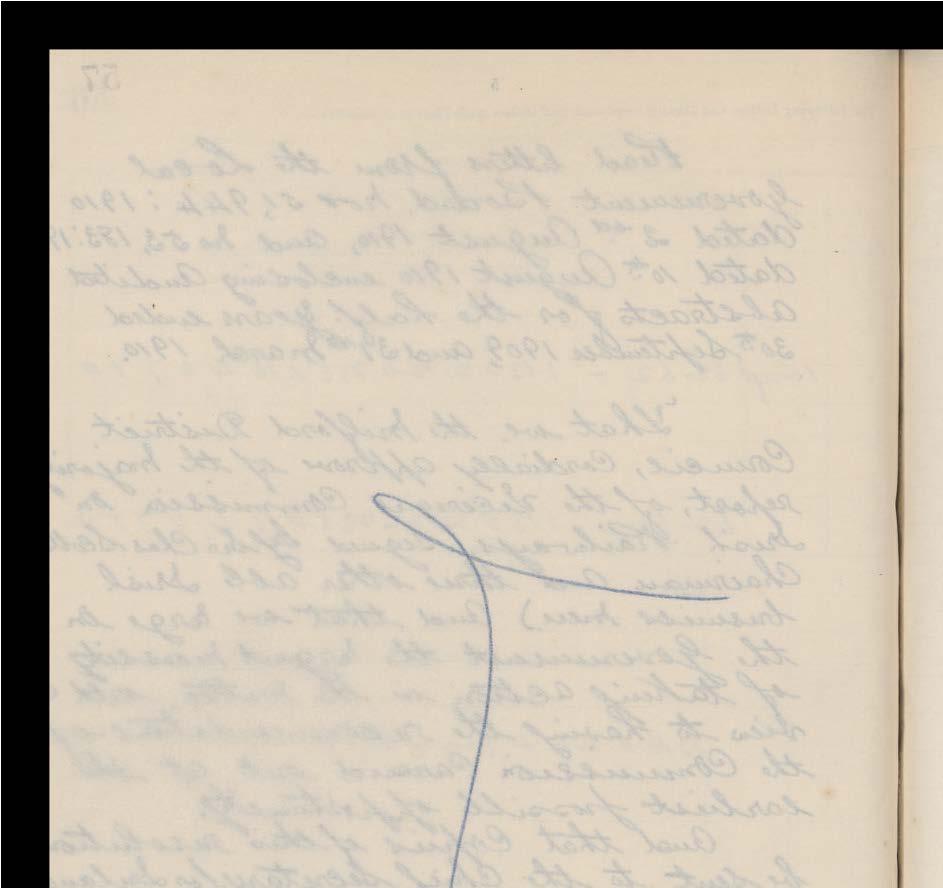 57
Read letters from the Local
Government Board, Nos 51,944 : 1910
dated 3rd August 1910, and No 53,183:19
dated 10th August 1910 enclosing Audited
Abstracts for the half years ended
30th September 1909, and 31st March 1910.
That we the Milford District
Council, cordially approve of the majori
report, of the Viceregal Commission on
Irish Railways signed by Sir Chas Scott
Chairman and three other able Irish
business men) and that we urge on
the Government the urgent necessity
of taking action in the matter with
view to having the recommendations of
the Commission carried out at the
earliest possible opportunity.
And that copies of this resolution
be sent to the Chief Secretary for Irelan